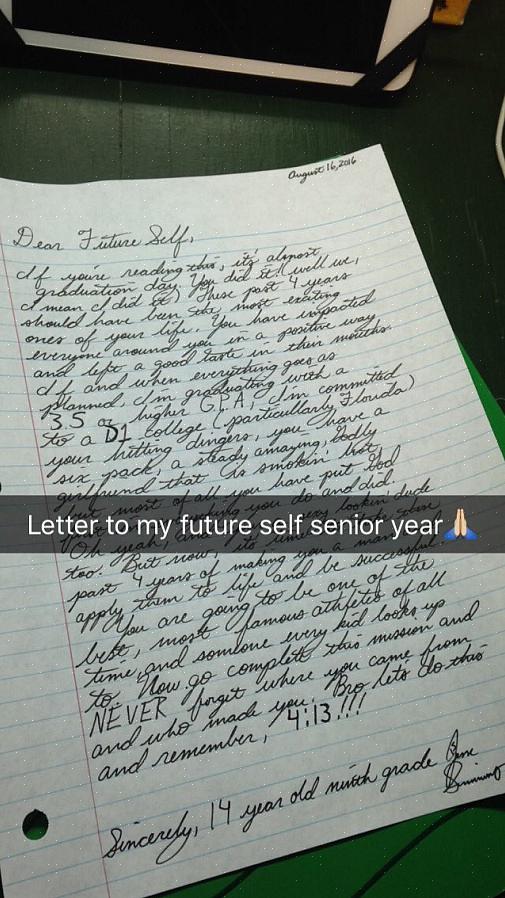 August 16, 2016
Dear Future Self,
If you're reading this, it's almost
graduation day. You did it! (well we,
I mean I did it) These past 4 years
should have been the most exciting
ones of your life. You have impacted
everyone around you in a positive way
and left a good taste in their mouths.
If and when everything goes as
planned, I'm graduating with a
3.5 or higher G.P.A, I'm committed
to a D1 college (particullarly Florida)
your hitting dingers, you have a
six pack, a steady amazing, Godly
girlfriend that is smokin' hot
but most of all you have put God
you do and did.
Oh yeah, and lookin dude
Letter to my future self senior year🙏🏻
too. But now, its time
past 4 years of making you a man
apply them to life and be successful.
You are going to be one of the
best, most famous athletes of all
time, and someone every kid looks up
to. Now go complete this mission and
NEVER forget where you came from
and who made you. Bro lets do this
and remember, 4:13!!!
Sincerely, 14 year old ninth grade